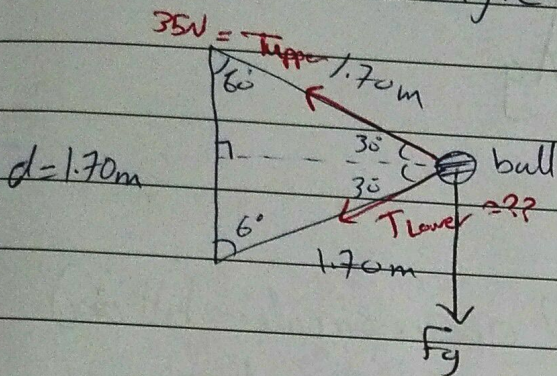 35N = Tupper 1.70m
60
30
d = 1.70m
ball
30
6° TLower = ??
1.70m
Fg